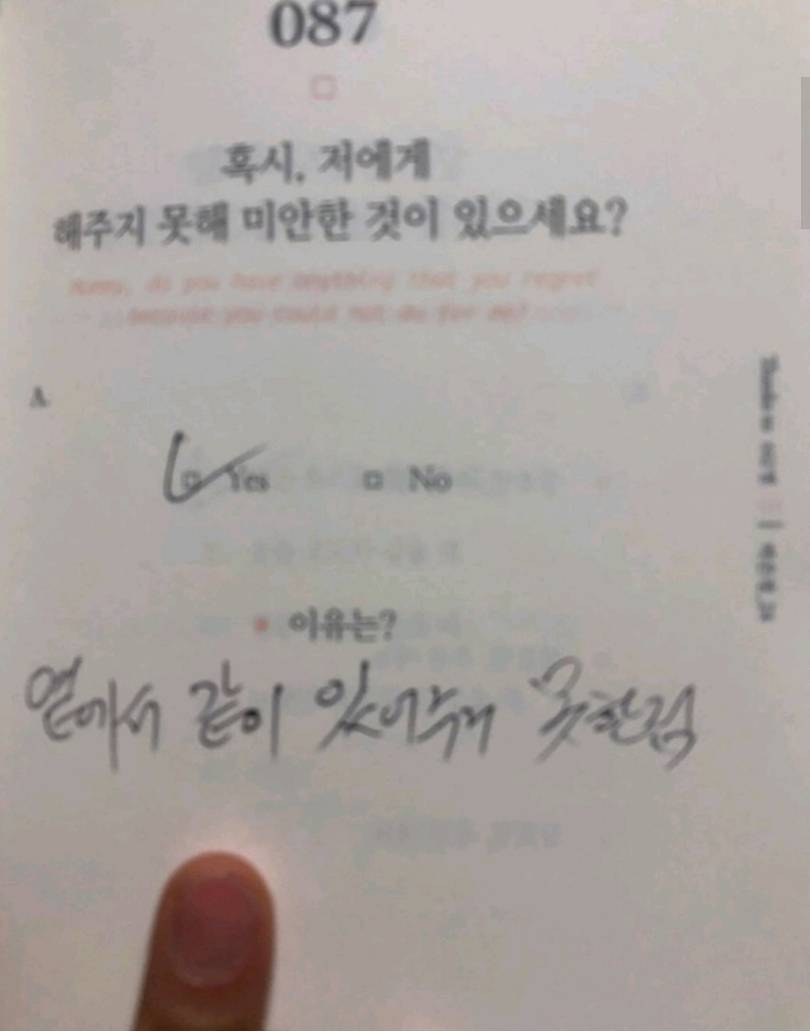 087
혹시, 저에게
해주지 못해 미안한 것이 있으세요?
do you have anything that you regret
because you could not do for me?
A
Yes
No
이유는?
옆에서 같이 있어주지 못한점